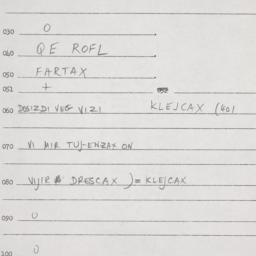 030 O
040 QE ROFL
050 FARTAX
051 +
060 DOSIZDI VEG VIZI KLEJCAX (40)
070 VI MIR TUJ-ENZAX ON
080 VIJIR DRESCAX ) = KLEJCAX
090 O
100 O